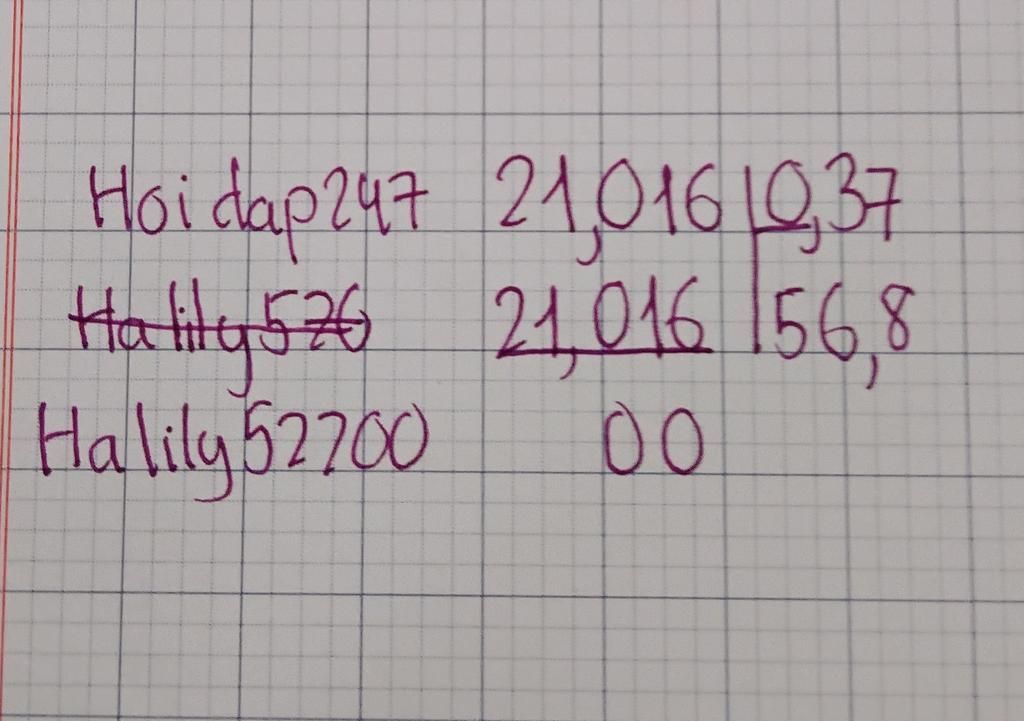 Hoidap247 21,016 0,37
Halily526 21,016 56,8
Halily52700 00